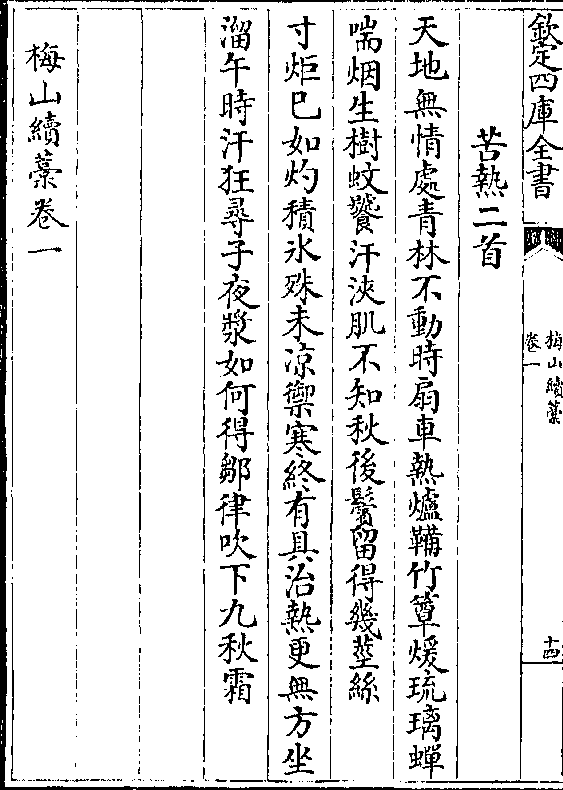 欽定四庫全書
梅山續藁
卷一
十四
苦熱二首
天地無情處青林不動時扇車熱爐鞴竹簟煖琉璃蟬
喘烟生樹蚊饕汗浹肌不知秋後鬢留得幾莖絲
寸炬已如灼積氷殊未凉禦寒終有具治熱更無方坐
溜午時汗狂尋子夜漿如何得鄒律吹下九秋霜
梅山續藁卷一